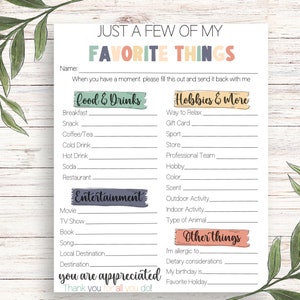 JUST A FEW OF MY
FAVORITE THINGS
Name:
When you have a moment please fill this out and send it back with me
Food & Drinks
Breakfast
Snack
Coffee/Tea
Cold Drink
Hot Drink
Soda
Restaurant
Entertainment
Movie
TV Show
Book
Song
Local Destination
Destination
you are appreciated
Thank you all you do!!
Hobbies & More
Way to Relax
Gift Card
Sport
Store
Professional Team
Hobby
Color
Scent
Outdoor Activity
Indoor Activity
Type of Animal
Other things
I'm allergic to
Dietary considerations
My birthday is
Favorite Holiday